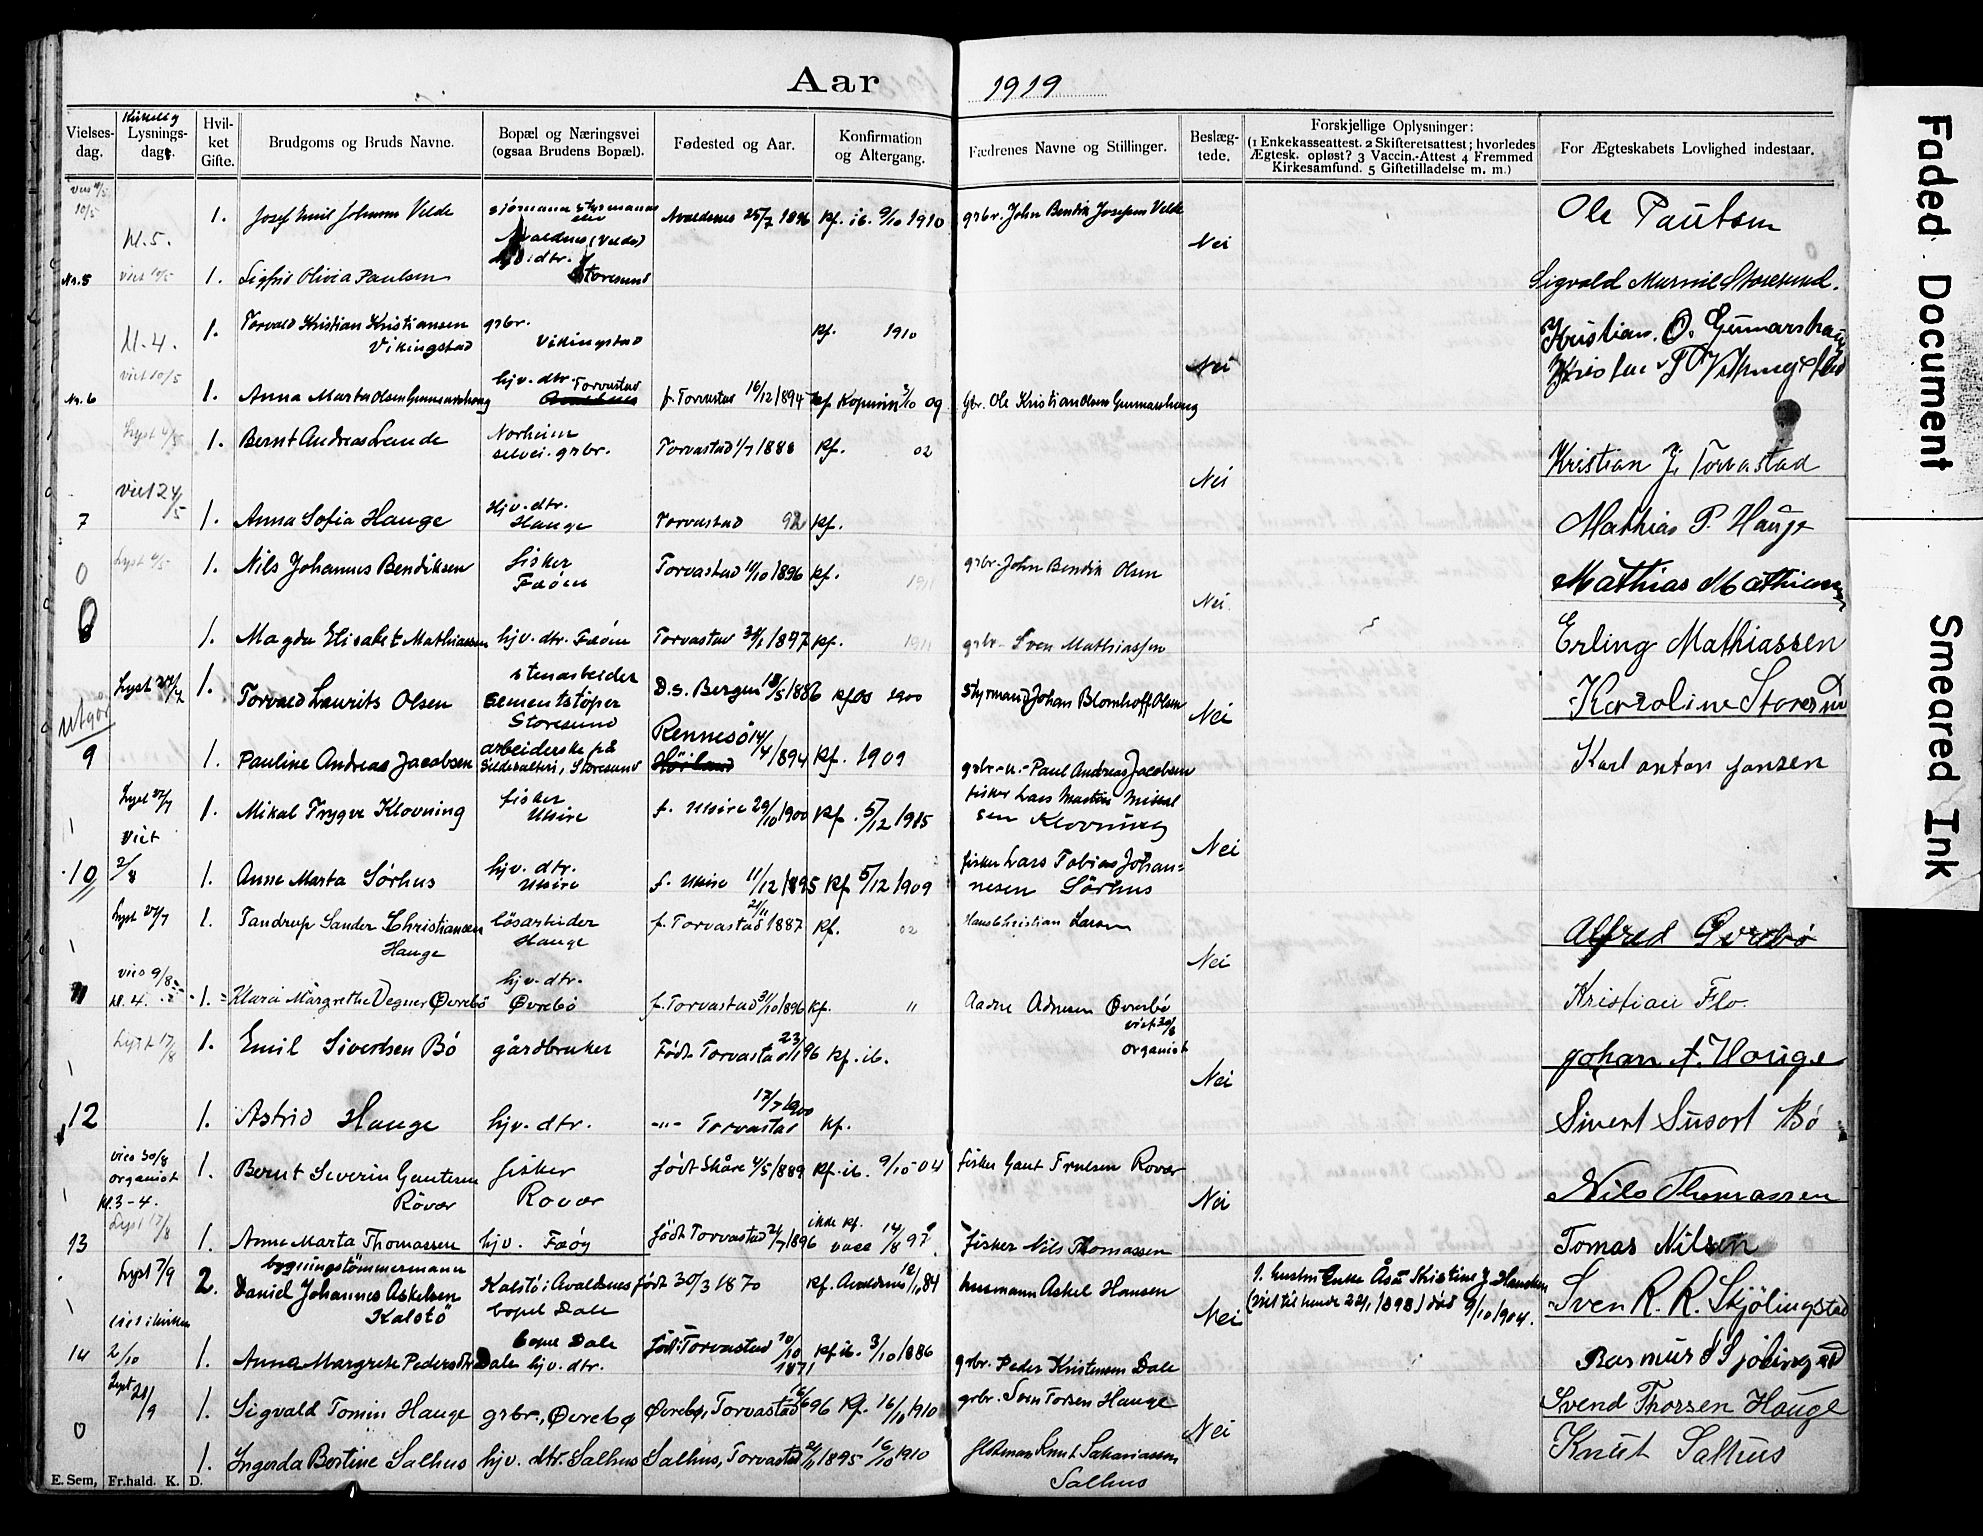 Aar 1919
Vielses-dag. Kirkelig Lysnings-dage Hvil-ket Gifte. Brudgoms og Bruds Navne. Bopæl og Næringsvei (ogsaa Brudens Bopæl). Fødested og Aar. Konfirmation og Altergang. Fædrenes Navne og Stillinger. Beslæg-tede. Forskjellige Oplysninger: (1 Enkekasseattest. 2 Skifteretsattest; hvorledes Ægtesk. opløst? 3 Vaccin.-Attest 4 Fremmed Kirkesamfund. 5 Giftetilladelse m. m.) For Ægteskabets Lovlighed indestaar.
10/5 kl. 5. 1. Josef Emil Johnsen Velde Avaldnes (Velde) Avaldnes 25/7 1896 kf. ib. 9/10 1910 grbr. John Bendik Josefsen Velde Nei Ole Paulsen
Nr. 5 viet 10/5 1. Sigfrid Olivia Paulsen hjv. dtr. Storesund Sigvald Storesund.
kl. 4. 1. Torvald Kristian Kristiansen Vikingstad grbr. Vikingstad kf. 1910 Nei Kristian. O. Gunnarshaug
Nr. 6 viet 10/5 1. Anna Marta Olsen Gunnarshaug hjv. dtr. Torvastad f. Torvastad 16/12 1894 kf Kopervik 3/10 09 Gbr. Ole Kristian Olsen Gunnarshaug
1. Bernt Andreas Lande Norheim selvei. grbr. Torvastad 1/7 1888 kf. 02 Nei Kristian J. Torvastad
7 viet 24/5 1. Anna Sofia Hauge Hjv. dtr. Hauge Torvastad 92 kf. Mathias P. Hauge
0 Lyst 1. Nils Johannes Bendiksen fisker Føøen Torvastad 11/10 1896 kf. 1911 grbr. John Bendik Olsen Nei Mathias Mathiassen
8 1. Magda Elisabet Mathiassen hjv. dtr. Føøen Torvastad 1897 kf. 1911 grbr. Sven Mathiassen Erling Mathiassen
utgår Lyst 27/7 1. Torvald Laurits Olsen stenarbeider sementstøper Storesund D.s. Bergen 18/5 1886 kf 1900 Styrmand Johan Blomhoff Olsen Nei Karoline Storesund
9 1. Pauline Andrea Jacobsen arbeiderske på Sildesalteri, Storesund Rennesö 14/4 1894 kf. 1909 grbr. Paul Andreas Jacobsen Karl anton Jansen
Lyst 27/7 viet 1. Mikal Trygve Klovning fisker Utsire f. Utsire 29/10 1900 kf. 5/12 1915 fisker Lars Martin Mikkelsen Klovning Nei
10 2/8 1. Anne Marta Sørhus hjv. dtr. Utsire f. Utsire 11/12 1895 kf 5/12 1909 fisker Lars Tobias Johan=nesen Sörhus
Lyst 27/7 1. Tandrup Sander Christiansen Hauge løsarbeider Hauge f. Torvastad 21/11 1887 kf. 02 Hans Christian Larsen Nei Alfred Øvrebø
11 vies 9/8 kl. 4. 1. Klara Margrethe Vegner Øvrebö hjv. dtr. Øvrebö f. Torvastad 3/10 1896 kf. 11 Aadne Adnesen Øvrebö Kristian Flo.
Lyst 17/8 1. Emil Sivertsen Bö gårdbruker Födt Torvastad 23/1 96 kf. ib. viet 30/8 organist Nei Johan A. Hauge
12 1. Astrid Hauge hjv. dtr. -"- Torvastad 17/7 1900 kf. Sivert Susort Bö
vies 30/8 organist kl. 3-4. 1. Bernt Severin Gautesen Røvær fisker Rovær født Skåre 4/5 1889 kf. ib. 9/10-04 fisker Gaut Trulsen Rovær Nei Nils Thomassen
13 Lyst 17/8 1. Anne Marta Thomassen hjv. Føøy født Torvastad 1896 ikke kf. vacc 14/8 97. fisker Nils Thomassen Tomas Nilsen
Lyst 7/9 2. bygningstømmermann Daniel Johannes Askelsen Kalstö Kalstö i Avaldnes bopel Dale født 30/3 1870 kf. Avaldnes 84 husmann Askel Hansen Nei Sven R. R. Skjölingstad
14 viet i kirken 2/10 1. Anna Margrete Pedersdtr Dale bopel Dale hjv. dtr. født Torvastad 10/10 1871 kf. ib. 3/10 1886 grbr. Peder Kristensen Dale
Lyst 21/9 1. Sigvald Tomin Hauge grbr., Øvrebø Øvrebø, Torvastad 96 kf. 16/10 1910 grbr. Sven Torsen Hauge Nei Svend Thorsen Hauge
0 1. Ingerda Bertine Salhus hjv. dtr. Salhus Salhus, Torvastad 1895 16/10 1910 Knut Sakariassen Salhus Knut Salhus
E. Sem, Fr.hald. K. D.
Faded Document
Smeared Ink